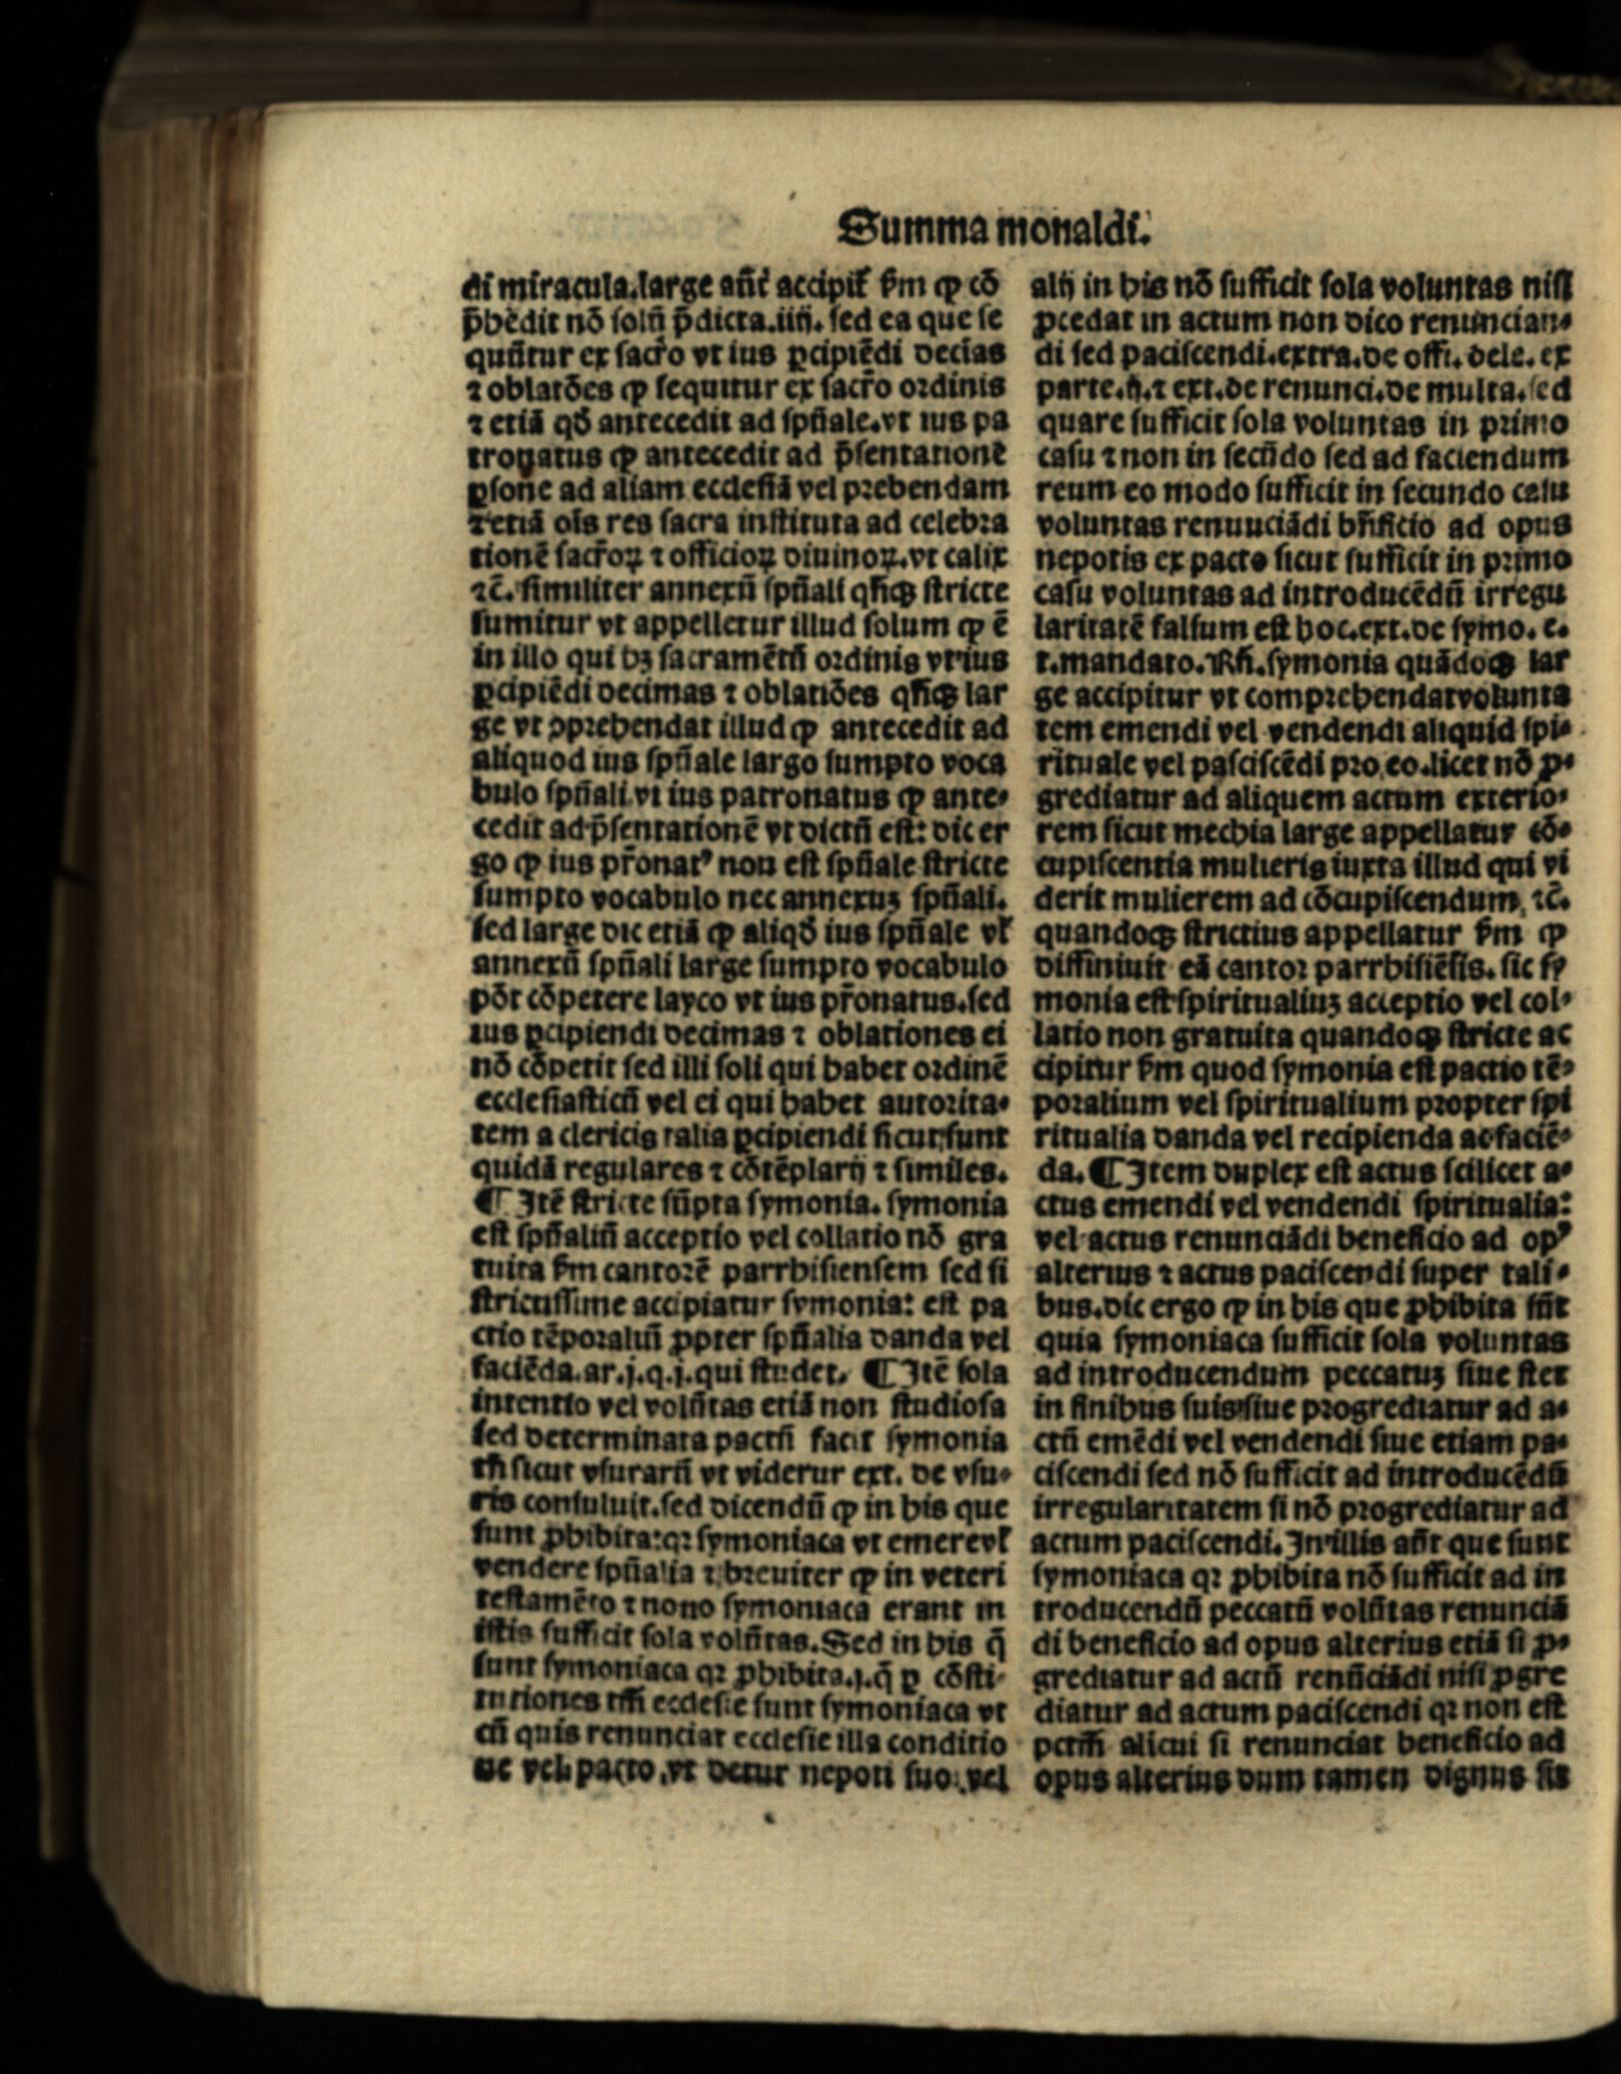 Summa monaldi.
di miracula.large añt accipit̃ ẜm ꝙ cõ
p̃hẽdit nõ ſolũ p̃dicta.iiij. ſed ea que ſe
quñtur ex ſacr̃o vt ius ꝑcipiẽdi decias
⁊ oblatões ꝙ ſequitur ex ſacr̃o ordinis
⁊ etiã qð antecedit ad ſpũale.vt ius pa
tronatus ꝙ antecedit ad p̃ſentationẽ
ꝑſone ad aliam eccleſiã vel prebendam
⁊ etiã oĩs res ſacra inſtituta ad celebra
tionẽ ſacr̃oꝝ ⁊ officioꝝ diuinoꝝ.vt calix
⁊c̃. ſimiliter annexũ ſpũali qñꝗ ſtricte
ſumitur vt appelletur illud ſolum ꝙ ẽ
in illo qui hꝫ ſacramẽtũ ordinis vt ius
ꝑcipiẽdi decimas ⁊ oblatiões qñꝗ lar
ge vt ꝯprehendat illud ꝙ antecedit ad
aliquod ius ſpũale largo ſumpto voca
bulo ſpũali.vt ius patronatus ꝙ ante⸗
cedit ad p̃ſentationẽ vt dictũ eſt: dic er
go ꝙ ius pr̃onatꝰ non eſt ſpũale ſtricte
ſumpto vocabulo nec annexuꝫ ſpũali.
ſed large dic etiã ꝙ aliqð ius ſpũale vl̃
annexũ ſpũali large ſumpto vocabulo
põt cõpetere layco vt ius pr̃onatus.ſed
ius ꝑcipiendi decimas ⁊ oblationes ei
nõ cõpetit ſed illi ſoli qui habet ordinẽ
eccleſiaſticũ vel ei qui habet autorita⸗
tem a clericis talia ꝑcipiendi ſicut ſunt
quidã regulares ⁊ cõtẽplarij ⁊ ſimiles.
¶ Itẽ ſtricte ſũpta ſymonia. ſymonia
eſt ſpũaliũ acceptio vel collatio nõ gra
tuita ẜm cantorẽ parrhiſienſem ſed ſi
ſtrictiſſime accipiatur ſymonia: eſt pa
ctio tẽporaliũ ꝓpter ſpũalia danda vel
faciẽda.ar.j.q.j.qui ſtudet. ¶ Itẽ ſola
intentio vel volũtas etiã non ſtudioſa
ſed determinata pactũ facit ſymonia
tñ ſicut vſurariũ vt videtur ext. de vſu⸗
ris conſuluit.ſed dicendũ ꝙ in his que
ſunt ꝓhibita:qꝛ ſymoniaca vt emere vl̃
vendere ſpũalia ⁊ breuiter ꝙ in veteri
teſtamẽto ⁊ nono ſymoniaca erant in
iſtis ſufficit ſola volũtas.Sed in his q̃
ſunt ſymoniaca qꝛ ꝓhibita.j.q̃ ꝑ cõſti⸗
tutiones tm̃ eccleſie ſunt ſymoniaca vt
cũ quis renunciat eccleſie illa conditio
ne vel pacto.vt detur nepoti ſuo vel
alij in his nõ ſufficit ſola voluntas niſi
ꝓcedat in actum non dico renuncian⸗
di ſed paciſcendi.extra.de offi. dele. ex
parte.ij.⁊ ext.de renunci.de multa.ſed
quare ſufficit ſola voluntas in primo
caſu ⁊ non in ſecũdo ſed ad faciendum
reum eo modo ſufficit in ſecundo caſu
voluntas renunciãdi bñficio ad opus
nepotis ex pacto ſicut ſufficit in primo
caſu voluntas ad introducẽdũ irregu
laritatẽ falſum eſt hoc.ext.de ſymo. e.
t.mandato.Rñ.ſymonia quãdoꝗ lar
ge accipitur vt comprehendat volunta
tem emendi vel vendendi aliquid ſpi⸗
rituale vel paſciſcẽdi pro eo.licet nõ ꝓ⸗
grediatur ad aliquem actum exterio⸗
rem ſicut mechia large appellatur cõ⸗
cupiſcentia mulieris iuxta illud qui vi
derit mulierem ad cõcupiſcendum, ⁊c̃.
quandoꝗ ſtrictius appellatur ẜm ꝙ
diffiniuit eã cantor parrhiſiẽſis. ſic ſy
monia eſt ſpiritualiuꝫ acceptio vel col⸗
latio non gratuita quandoꝗ ſtricte ac
cipitur ẜm quod ſymonia eſt pactio tẽ⸗
poralium vel ſpiritualium propter ſpi
ritualia danda vel recipienda ac faciẽ⸗
da. ¶ Item duplex eſt actus ſcilicet a⸗
ctus emendi vel vendendi ſpiritualia:
vel actus renunciãdi beneficio ad opꝰ
alterius ⁊ actus paciſcendi ſuper tali⸗
bus.dic ergo ꝙ in his que ꝓhibita ſũt
quia ſymoniaca ſufficit ſola voluntas
ad introducendum peccatuꝫ ſiue ſtet
in finibus ſuis ſiue progrediatur ad a⸗
ctũ emẽdi vel vendendi ſiue etiam pa⸗
ciſcendi ſed nõ ſufficit ad introducẽdũ
irregularitatem ſi nõ progrediatur ad
actum paciſcendi. In illis añt que ſunt
ſymoniaca qꝛ ꝓhibita nõ ſufficit ad in
troducendũ peccatũ volũtas renunciã
di beneficio ad opus alterius etiã ſi ꝓ⸗
grediatur ad actũ renũciãdi niſi ꝓgre
diatur ad actum paciſcendi qꝛ non eſt
pctm̃ alicui ſi renunciat beneficio ad
opus alterius dum tamen dignus ſit